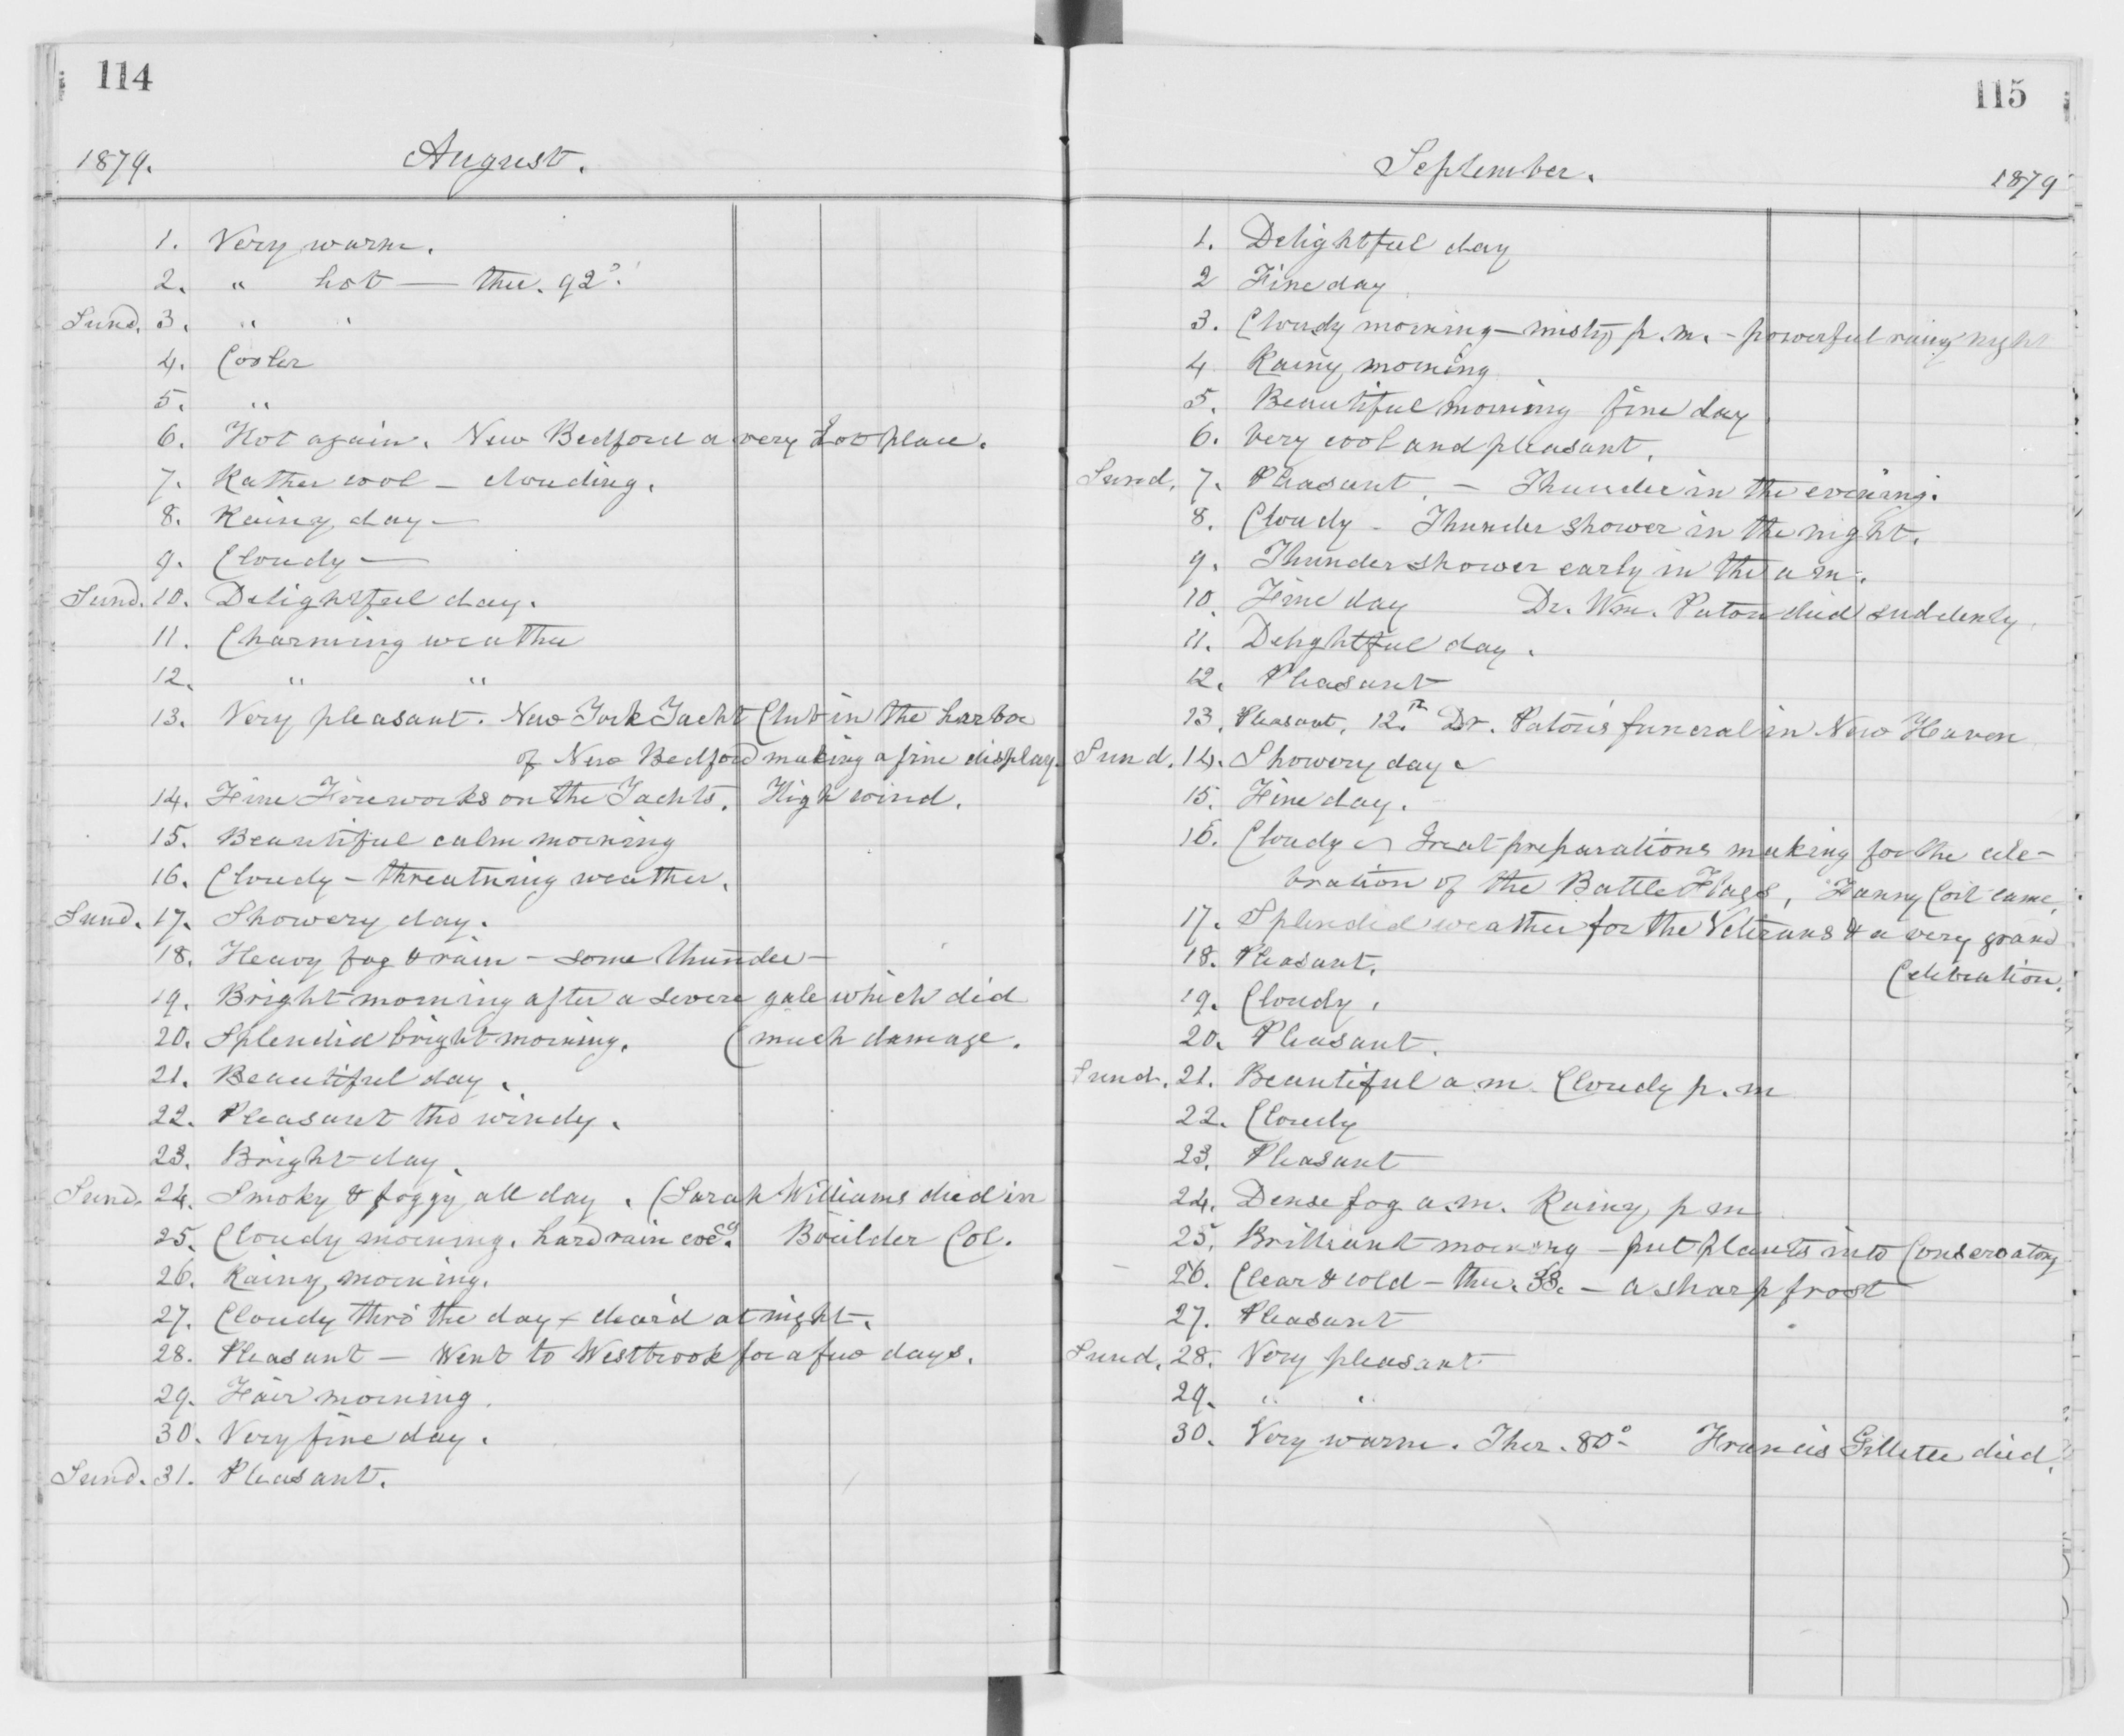 114
1879. August.
1. Very warm.
2. " hot — ther. 92°.
Sund. 3. " "
4. Cooler
5. "
6. Hot again. New Bedford a very hot place.
7. Rather cool — clouding.
8. Rainy day —
9. Cloudy —
Sund. 10. Delightful day.
11. Charming weather
12. " "
13. Very pleasant. New York Yacht Club in the harbor
of New Bedford making a fine display.
14. Fine Fireworks on the Yachts. High wind.
15. Beautiful calm morning
16. Cloudy — threatning weather.
Sund. 17. Showery day.
18. Heavy fog & rain — some thunder —
19. Bright morning after a severe gale which did
20. Splendid bright morning. (much damage.
21. Beautiful day.
22. Pleasant tho windy.
23. Bright day.
Sund. 24. Smoky & foggy all day. (Sarah Williams died in
25. Cloudy morning. hard rain eve.g Boulder Col.
26. Rainy morning.
27. Cloudy thro' the day — clear'd at night.
28. Pleasant — Went to Westbrook for a few days.
29. Fair morning.
30. Very fine day.
Sund. 31. Pleasant.
115
September. 1879
1. Delightful day
2 Fine day
3. Cloudy morning — misty p.m. — powerful rainy night
4 Rainy morning
5. Beautiful morning fine day
6. Very cool and pleasant.
Sund. 7. Pleasant. — Thunder in the evening.
8. Cloudy — Thunder shower in the night.
9. Thunder shower early in the a m.
10. Fine day Dr. Wm. Paton died suddenly.
11. Delightful day.
12. Pleasant
13. Pleasant. 12.th Dr. Paton's funeral in New Haven
Sund. 14. Showery day.
15. Fine day.
16. Cloudy — Great preparations making for the cele-
bration of the Battle Flags. Fanny Coit came.
17. Splendid weather for the Veterans & a very grand
18. Pleasant. Celebration.
19. Cloudy.
20. Pleasant.
Sund. 21. Beautiful a.m. Cloudy p.m
22. Cloudy
23. Pleasant
24. Dense fog a.m. Rainy p m
25. Brilliant morning — put plants into Conservatory
26. Clear & cold — ther. 33. — a sharp frost
27. Pleasant
Sund. 28. Very pleasant
29. " "
30. Very warm. Ther. 80° — Francis Gillette died.